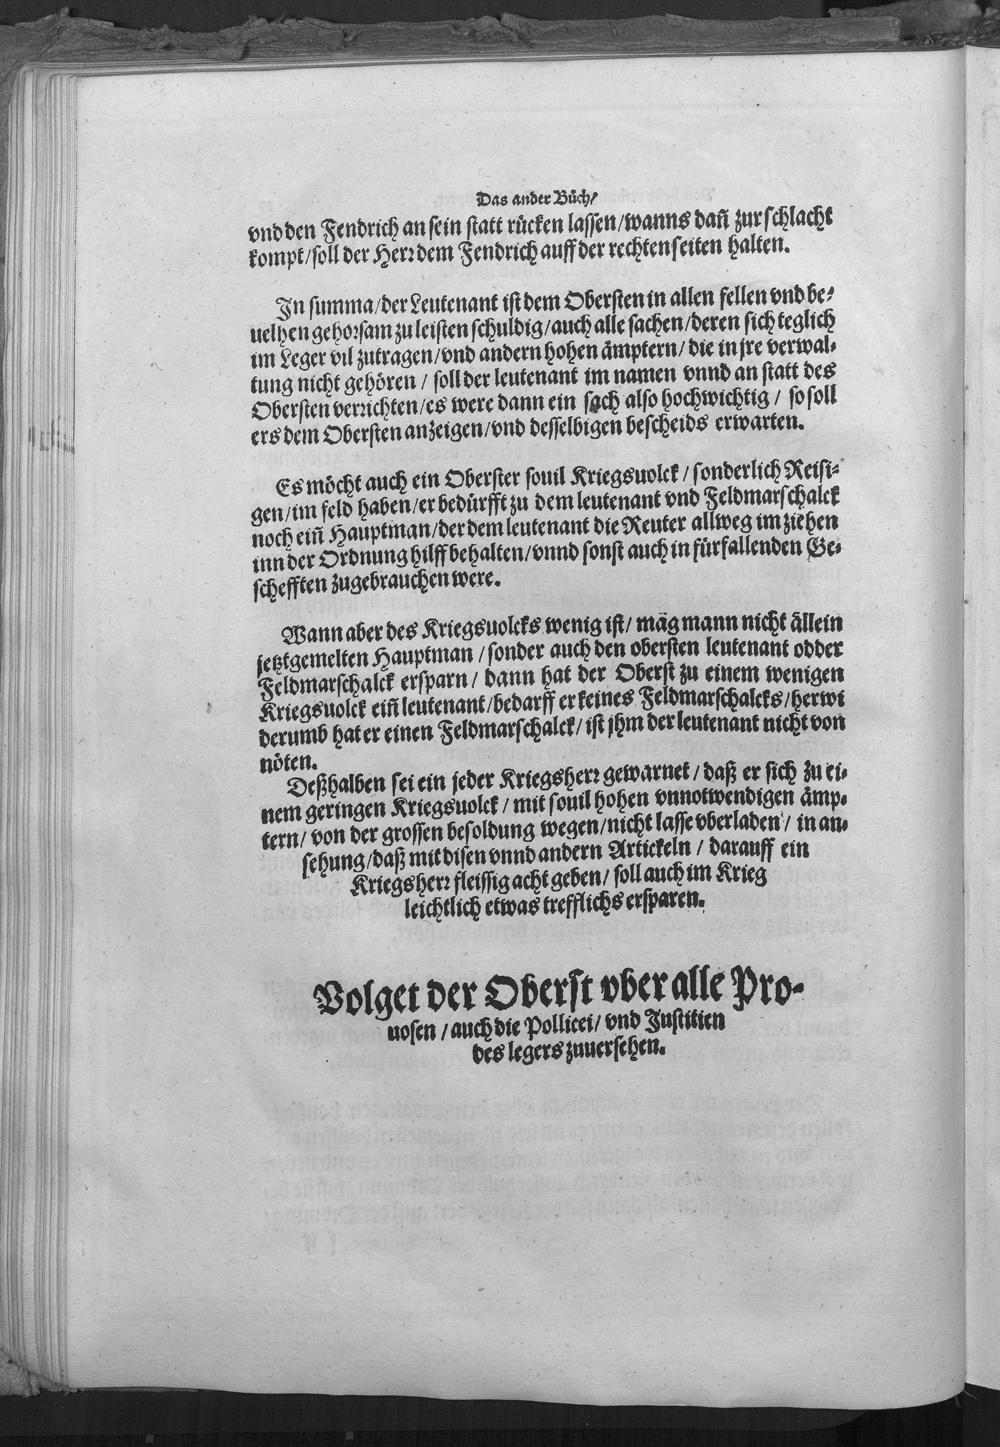 Das ander Bůch/
vnd den Fendrich an sein statt rücken lassen/wanns dañ zur schlacht
kompt/soll der Herꝛ dem Fendrich auff der rechten seiten halten.
In summa/der Leutenant ist dem Obersten in allen fellen vnd be-
uelhen gehoꝛsam zu leisten schuldig/auch alle sachen/deren sich teglich
im Leger vil zutragen/vnd andern hohen ämptern/die in jre verwal-
tung nicht gehören/ soll der leutenant im namen vnnd an statt des
Obersten verꝛichten/es were dann ein sach also hochwichtig/ so soll
ers dem Obersten anzeigen/vnd desselbigen bescheids erwarten.
Es möcht auch ein Oberster souil Kriegsuolck/sonderlich Reisi-
gen/im feld haben/er bedürfft zu dem leutenant vnd Feldmarschalck
noch eiñ Hauptman/der dem leutenant die Reuter allweg im ziehen
inn der Ordnung hilff behalten/vnnd sonst auch in fürfallenden Ge-
schefften zugebrauchen were.
Wann aber des Kriegsuolcks wenig ist/ mag mann nicht allein
jetztgemelten Hauptman/sonder auch den obersten leutenant odder
Feldmarschalck ersparn/ dann hat der Oberst zu einem wenigen
Kriegsuolck eiñ leutenant/bedarff er keines Feldmarschalcks/herwi
derumb hat er einen Feldmarschalck/ist jhm der leutenant nicht von
nöten.
Deßhalben sei ein jeder Kriegsherꝛ gewarnet/daß er sich zu ei-
nem geringen Kriegsuolck/ mit souil hohen vnnotwendigen ämp-
tern/ von der grossen besoldung wegen/nicht lasse vberladen/ in an-
sehung/daß mit disen vnnd andern Artickeln/ darauff ein
Kriegsherꝛ fleissig acht geben/ soll auch im Krieg
leichtlich etwas trefflichs ersparen.
Volget der Oberst vber alle Pro-
uosen/auch die Pollicei/vnd Justitien
des legers zuuersehen.